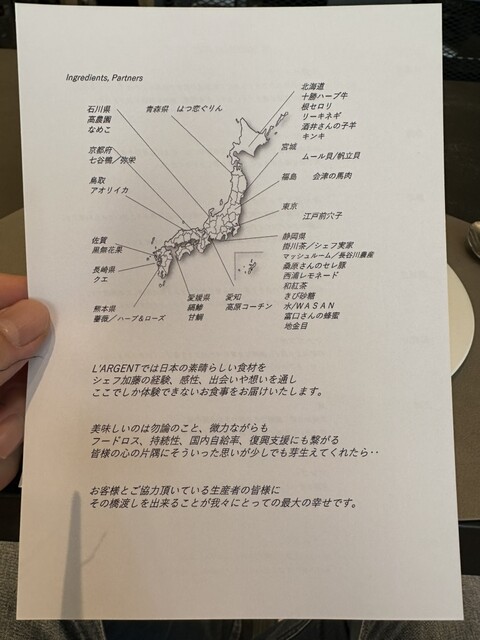 Ingredients, Partners
北海道
十勝ハーブ牛
根セロリ
リーキネギ
酒井さんの子羊
キンキ
石川県
高農園
なめこ
青森県 はつ恋ぐりん
宮城
ムール貝/帆立貝
京都府
七谷鴨/弥栄
福島 会津の馬肉
鳥取
アオリイカ
東京
江戸前穴子
静岡県
掛川茶/シェフ実家
マッシュルーム/長谷川農産
桑原さんのセレ豚
西浦レモネード
和紅茶
きび砂糖
水/WASAN
富口さんの蜂蜜
地金目
佐賀
長崎県
クエ
熊本県
薔薇/ハーブ&ローズ
愛媛県
甘鯛
愛知
高原コーチン
L'ARGENTでは日本の素晴らしい食材を
シェフ加藤の経験、感性、出会いや想いを通し
ここでしか体験できないお食事をお届けいたします。
美味しいのは勿論のこと、微力ながらも
フードロス、持続性、国内自給率、復興支援にも繋がる
皆様の心の片隅にそういった思いが少しでも芽生えてくれたら‥
お客様とご協力頂いている生産者の皆様に
その橋渡しを出来ることが我々にとっての最大の幸せです。